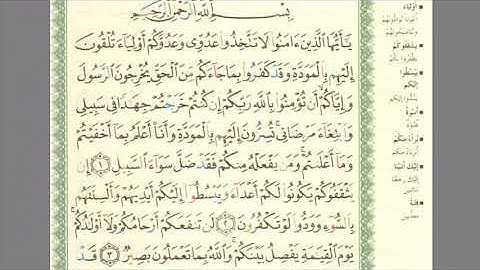 بِسْمِ اللَّهِ الرَّحْمَٰنِ الرَّحِيمِ
يَا أَيُّهَا الَّذِينَ ءَامَنُوا لَا تَتَّخِذُوا عَدُوِّي وَعَدُوَّكُمْ أَوْلِيَاءَ تُلْقُونَ
إِلَيْهِم بِالْمَوَدَّةِ وَقَدْ كَفَرُوا بِمَا جَاءَكُم مِّنَ الْحَقِّ يُخْرِجُونَ الرَّسُولَ
وَإِيَّاكُمْ أَن تُؤْمِنُوا بِاللَّهِ رَبِّكُمْ إِن كُنتُمْ خَرَجْتُمْ جِهَادًا فِي سَبِيلِي
وَابْتِغَاءَ مَرْضَاتِي تُسِرُّونَ إِلَيْهِم بِالْمَوَدَّةِ وَأَنَا أَعْلَمُ بِمَا أَخْفَيْتُمْ
وَمَا أَعْلَنتُمْ وَمَن يَفْعَلْهُ مِنكُمْ فَقَدْ ضَلَّ سَوَاءَ السَّبِيلِ ١ إِن
يَثْقَفُوكُمْ يَكُونُوا لَكُمْ أَعْدَاءً وَيَبْسُطُوا إِلَيْكُمْ أَيْدِيَهُمْ وَأَلْسِنَتَهُم
بِالسُّوءِ وَوَدُّوا لَوْ تَكْفُرُونَ ٢ لَن تَنفَعَكُمْ أَرْحَامُكُمْ وَلَا أَوْلَادُكُمْ
يَوْمَ الْقِيَامَةِ يَفْصِلُ بَيْنَكُمْ وَاللَّهُ بِمَا تَعْمَلُونَ بَصِيرٌ ٣ قَدْ
أولياء
يثقفوكم
يبسطوا
إليكم
أسوة
برآء منكم
إليك أنبنا
فتنة